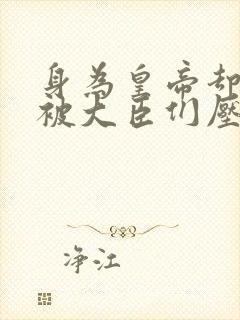 身為皇帝却
被大臣们壓
净江